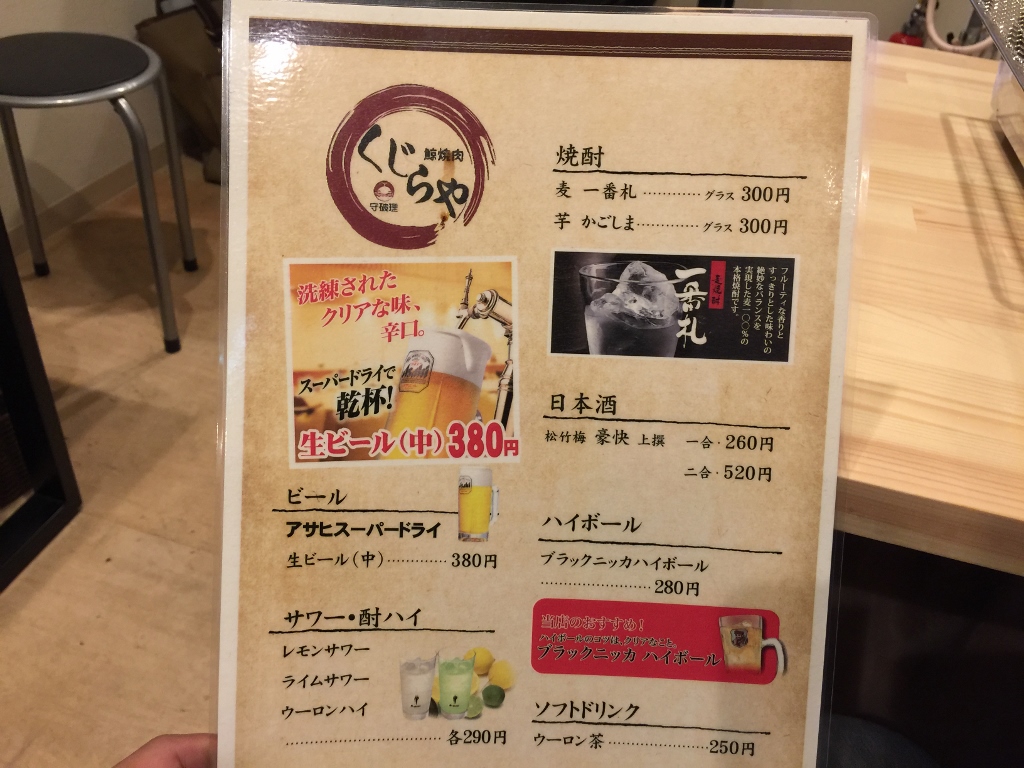 くじらや
鯨焼肉
洗練された
クリアな味、
辛口。
スーパードライで
乾杯!
生ビール(中)380円
ビール
アサヒスーパードライ
生ビール(中)・・・・・・・・・・・・・380円
サワー・酎ハイ
レモンサワー
ライムサワー
ウーロンハイ
・・・・・・・・・・・・・・・・・・・・・・・各290円
焼酎
麦 一番札・・・・・・・・・・・・グラス 300円
芋 かごしま・・・・・・・・・・・・・グラス 300円
フルーティな香りと
すっきりとした味わいの
絶妙なバランスを
実現した麦一〇〇%の
本格焼酎です。
麦焼酎
一番札
日本酒
松竹梅 豪快 上撰 一合・260円
二合・520円
ハイボール
ブラックニッカハイボール
・・・・・・・・・・・・・・・・・・・・・・・280円
当店のおすすめ!
ハイボールのコツは、クリアなこと。
ブラックニッカ ハイボール
ソフトドリンク
ウーロン茶・・・・・・・・・・・・・・・・・・・・・250円